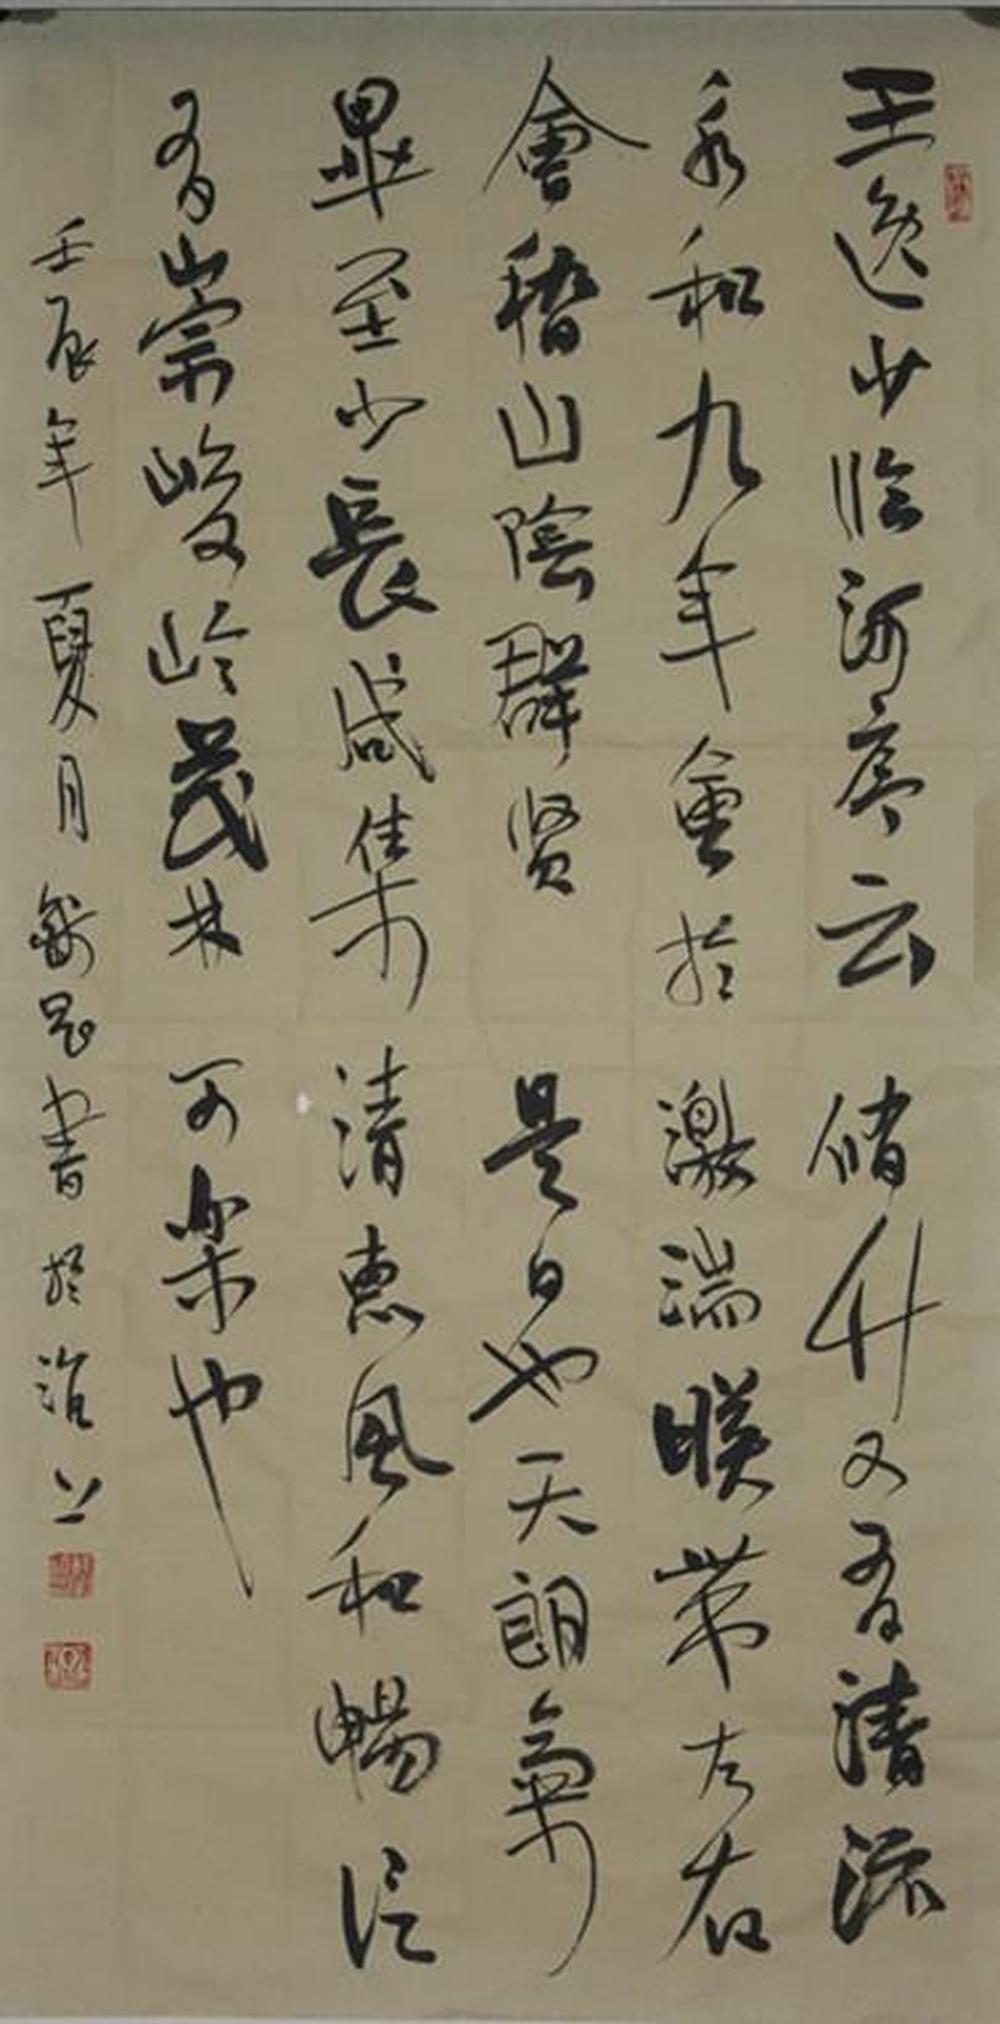 王逸少临河序云
永和九年會於
會稽山陰群贤
畢至少長咸集
有崇山峻岭茂林
脩竹又有清流
激湍暎帶左右
是日也天朗氣
清惠風和暢信
可樂也
壬辰年夏月 書於 上